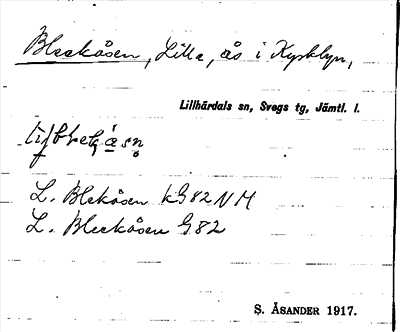 Bleckåsen, Lilla, ås i Kyrkbyn,
Lillhärdals sn, Svegs tg, Jämtl. l.
L. Blekåsen kG82NM
L. Bleckåsen G82
S. ÅSANDER 1917.